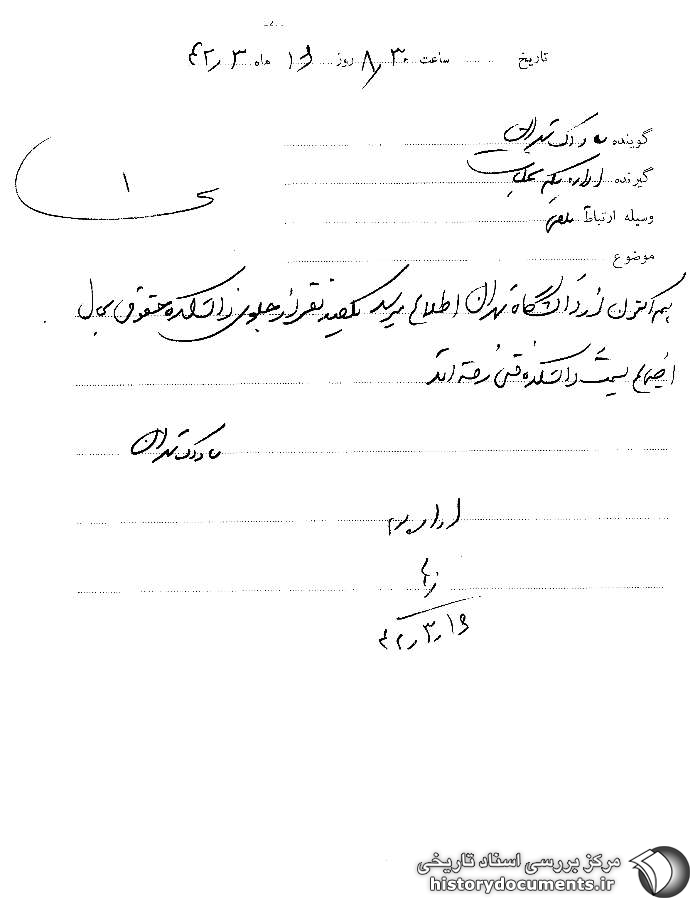 تاریخ ساعت ۸٫۳۰ روز ۱۶ ماه ۳٫ ۴۲
گوینده ساواک تهران
گیرنده اداره یکم عملیات
وسیله ارتباط تلفن
موضوع
۱
هم اکنون از دانشگاه تهران اطلاع میرسد یکصد نفر از جلوی دانشکده حقوق بحال
اجتماع بسمت دانشکده فنی رفته اند
ساواک تهران
۴۲٫۳٫۱۶
مرکز بررسی اسناد تاریخی
historydocuments.ir